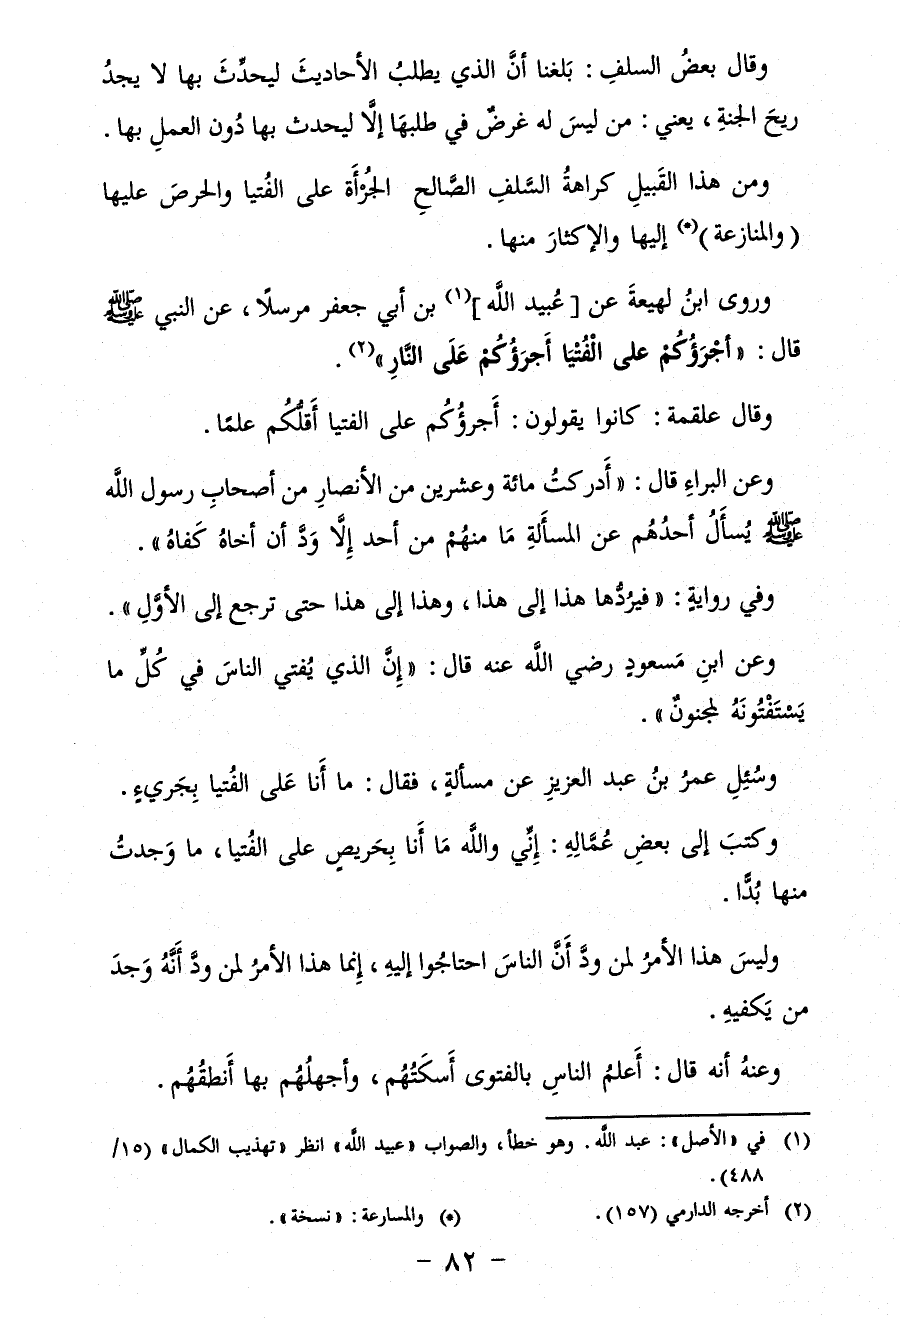 وقال بعضُ السلفِ : بَلغنا أنَّ الذي يطلبُ الأحاديثَ ليحدِّثَ بها لا يجدُ
ريحَ الجنةِ ، يعني : من ليسَ له غرضٌ في طلبهَا إلَّا ليحدث بها دُون العملِ بها .
ومن هذا القَبيلِ كراهةُ السَّلفِ الصَّالحِ الجُرْأَة على الفُتيا والحرصَ عليها
( والمنازعة )(*) إليها والإكثارَ منها .
وروى ابنُ لهيعةَ عن [ عُبيد اللَّه ](١) بن أبي جعفر مرسلًا ، عن النبي ﷺ
قال : « أجْرَؤُكُمْ على الْفُتْيَا أَجرَؤُكُمْ عَلَى النَّارِ »(٢) .
وقال علقمة : كانوا يقولون : أَجرؤُكُم على الفتيا أَقلُّكُم علمًا .
وعن البراءِ قال : « أَدركتُ مائة وعشرين من الأنصارِ من أصحابِ رسول اللَّه
ﷺ يُسأَلُ أحدُهُم عن المسأَلةِ مَا منهُمْ من أحد إِلَّا وَدَّ أن أخاهُ كَفاهُ » .
وفي روايةٍ : « فيرُدُّها هذا إلى هذا ، وهذا إلى هذا حتى ترجع إلى الأوَّلِ » .
وعن ابنِ مَسعودٍ رضي اللَّه عنه قال : « إِنَّ الذي يُفتي الناسَ في كُلِّ ما
يَسْتَفْتُونَهُ لمجنونٌ » .
وسُئِلِ عمرُ بنُ عبد العزيزِ عن مسألةٍ ، فقال : ما أَنا عَلى الفُتيا بِجَريءٍ .
وكتبَ إلى بعضِ عُمَّالِهِ : إِنِّي واللَّه مَا أَنا بِحَريصٍ على الفُتيا ، ما وَجدتُ
منها بُدًّا .
وليسَ هذا الأمرُ لمن ودَّ أَنَّ الناسَ احتاجُوا إليهِ ، إِنما هذا الأمرُ لمن ودَّ أَنَّهُ وَجدَ
من يَكفيهِ .
وعنهُ أنه قال : أَعلمُ الناسِ بالفتوى أَسكَتُهُم ، وأجهلُهُم بها أَنطقُهُم .
(١) في «الأصل» : عبد اللَّه . وهو خطأ ، والصواب «عبيد اللَّه» انظر «تهذيب الكمال» (١٥/
٤٨٨) .
(٢) أخرجه الدارمي (١٥٧) . (*) والمسارعة : «نسخة» .
- ٨٢ -